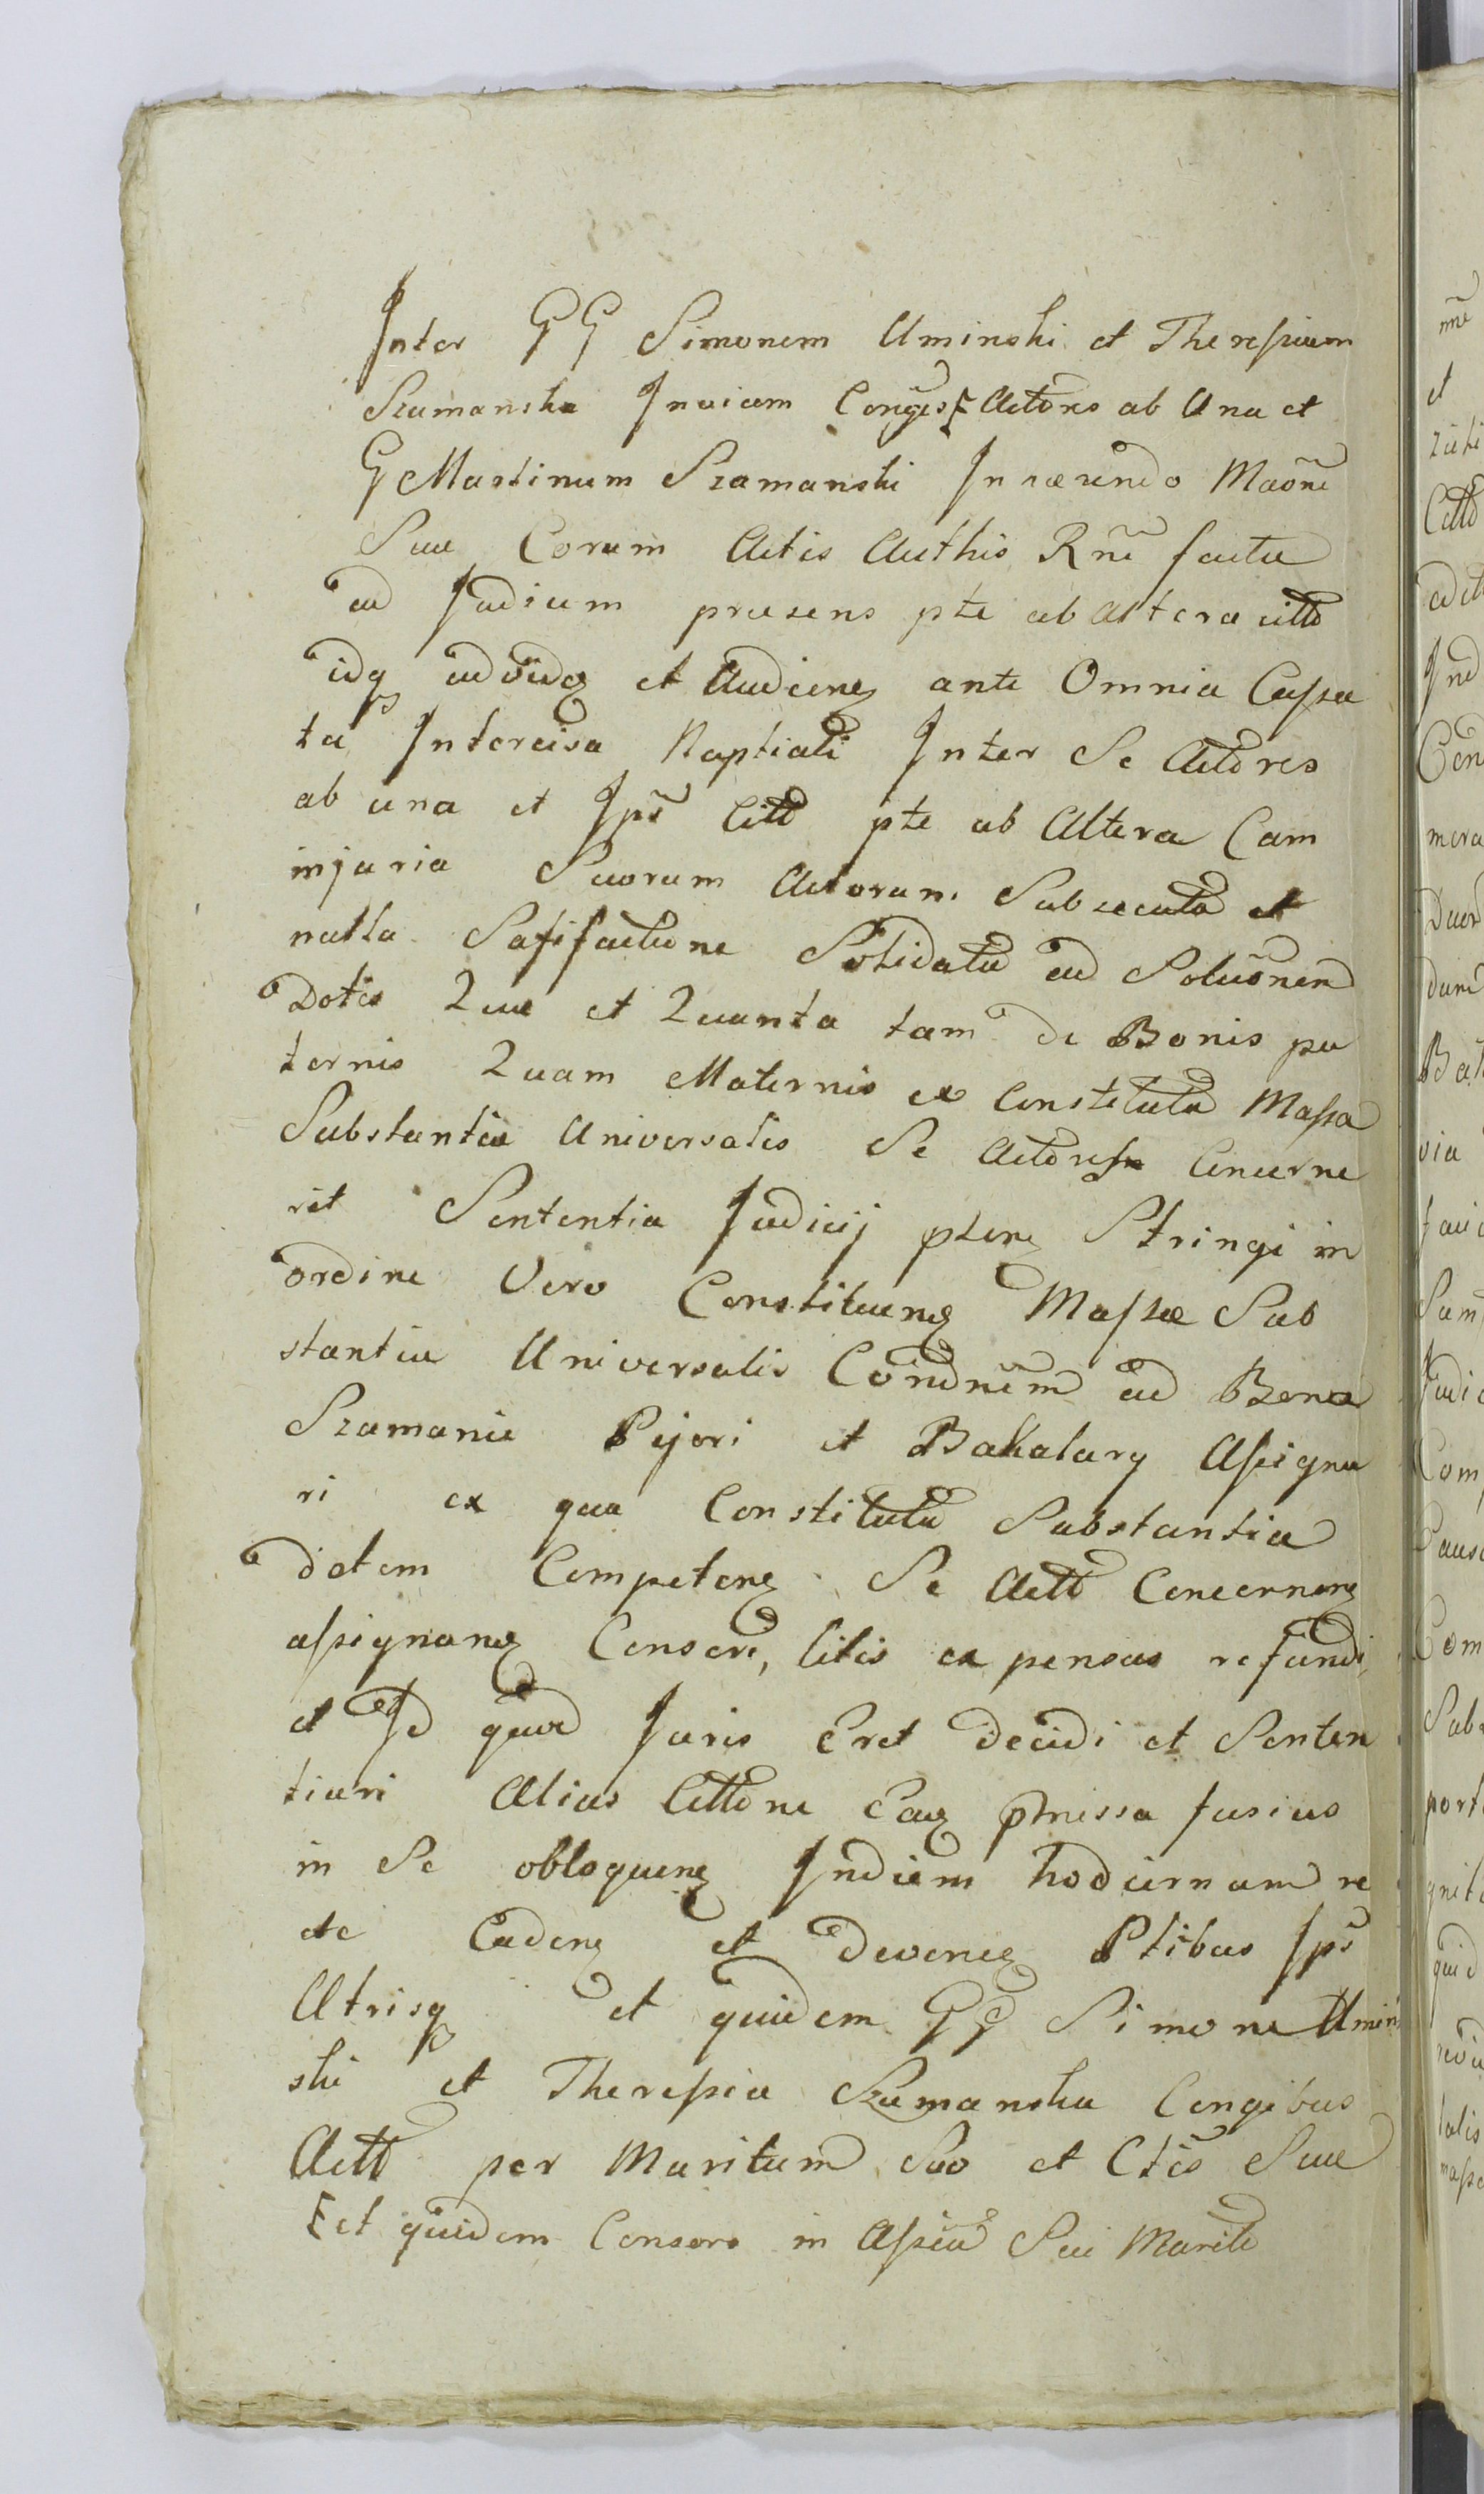 Inter GG Simonem Uminski et Theressiam
Szumanska Invicem Conges Actores ab Una et
G Martinum Szamanski In ræundo Maõne
Suu Coram Actis Authis Rñe factu
ad Judium presens pte ab altera citto
idq advideq et Audienq ante Omnia Cassa
ta Intercisa Nuptiali Inter Se Actores
ab una et Ips Citto pte ab Altera Cam
injuria Suorum Actorum Subsecuta et
nulla Satisfactione Solidatu ad Soluõnem
Dotis Quæ et Quanta tam de Bonis pa
ternis Quam Maternis ex Constituta Massa
Substantiæ Universalis Se Actores Concerne
ret Sententia Judicij ptenq Stringi in
ordine Vero Constituenq Massæ Sub
stantiæ Universalis Condnem ad Bona
Szamanie Pijori et Bakalarij Assigna
ri ex qua Constituta Substantia
dotem Competenq Se Actt Concernenq
assignanq Conseri, litis expensas refundi
et Id quod Juris Eret decidi et Senten
tiari Alias Cittone Eaq pmissa fusius
in Se obloquenq Indiem hodiernam re
cte Cadenq et devenieq Ptibus Ips
Utrisq et quidem GG Simone Umin
ski et Theressia Szumanska Congibus
Actt per Maritum Suo et Ctis Suæ
Et quidem Consors in Assia Sui Mariti